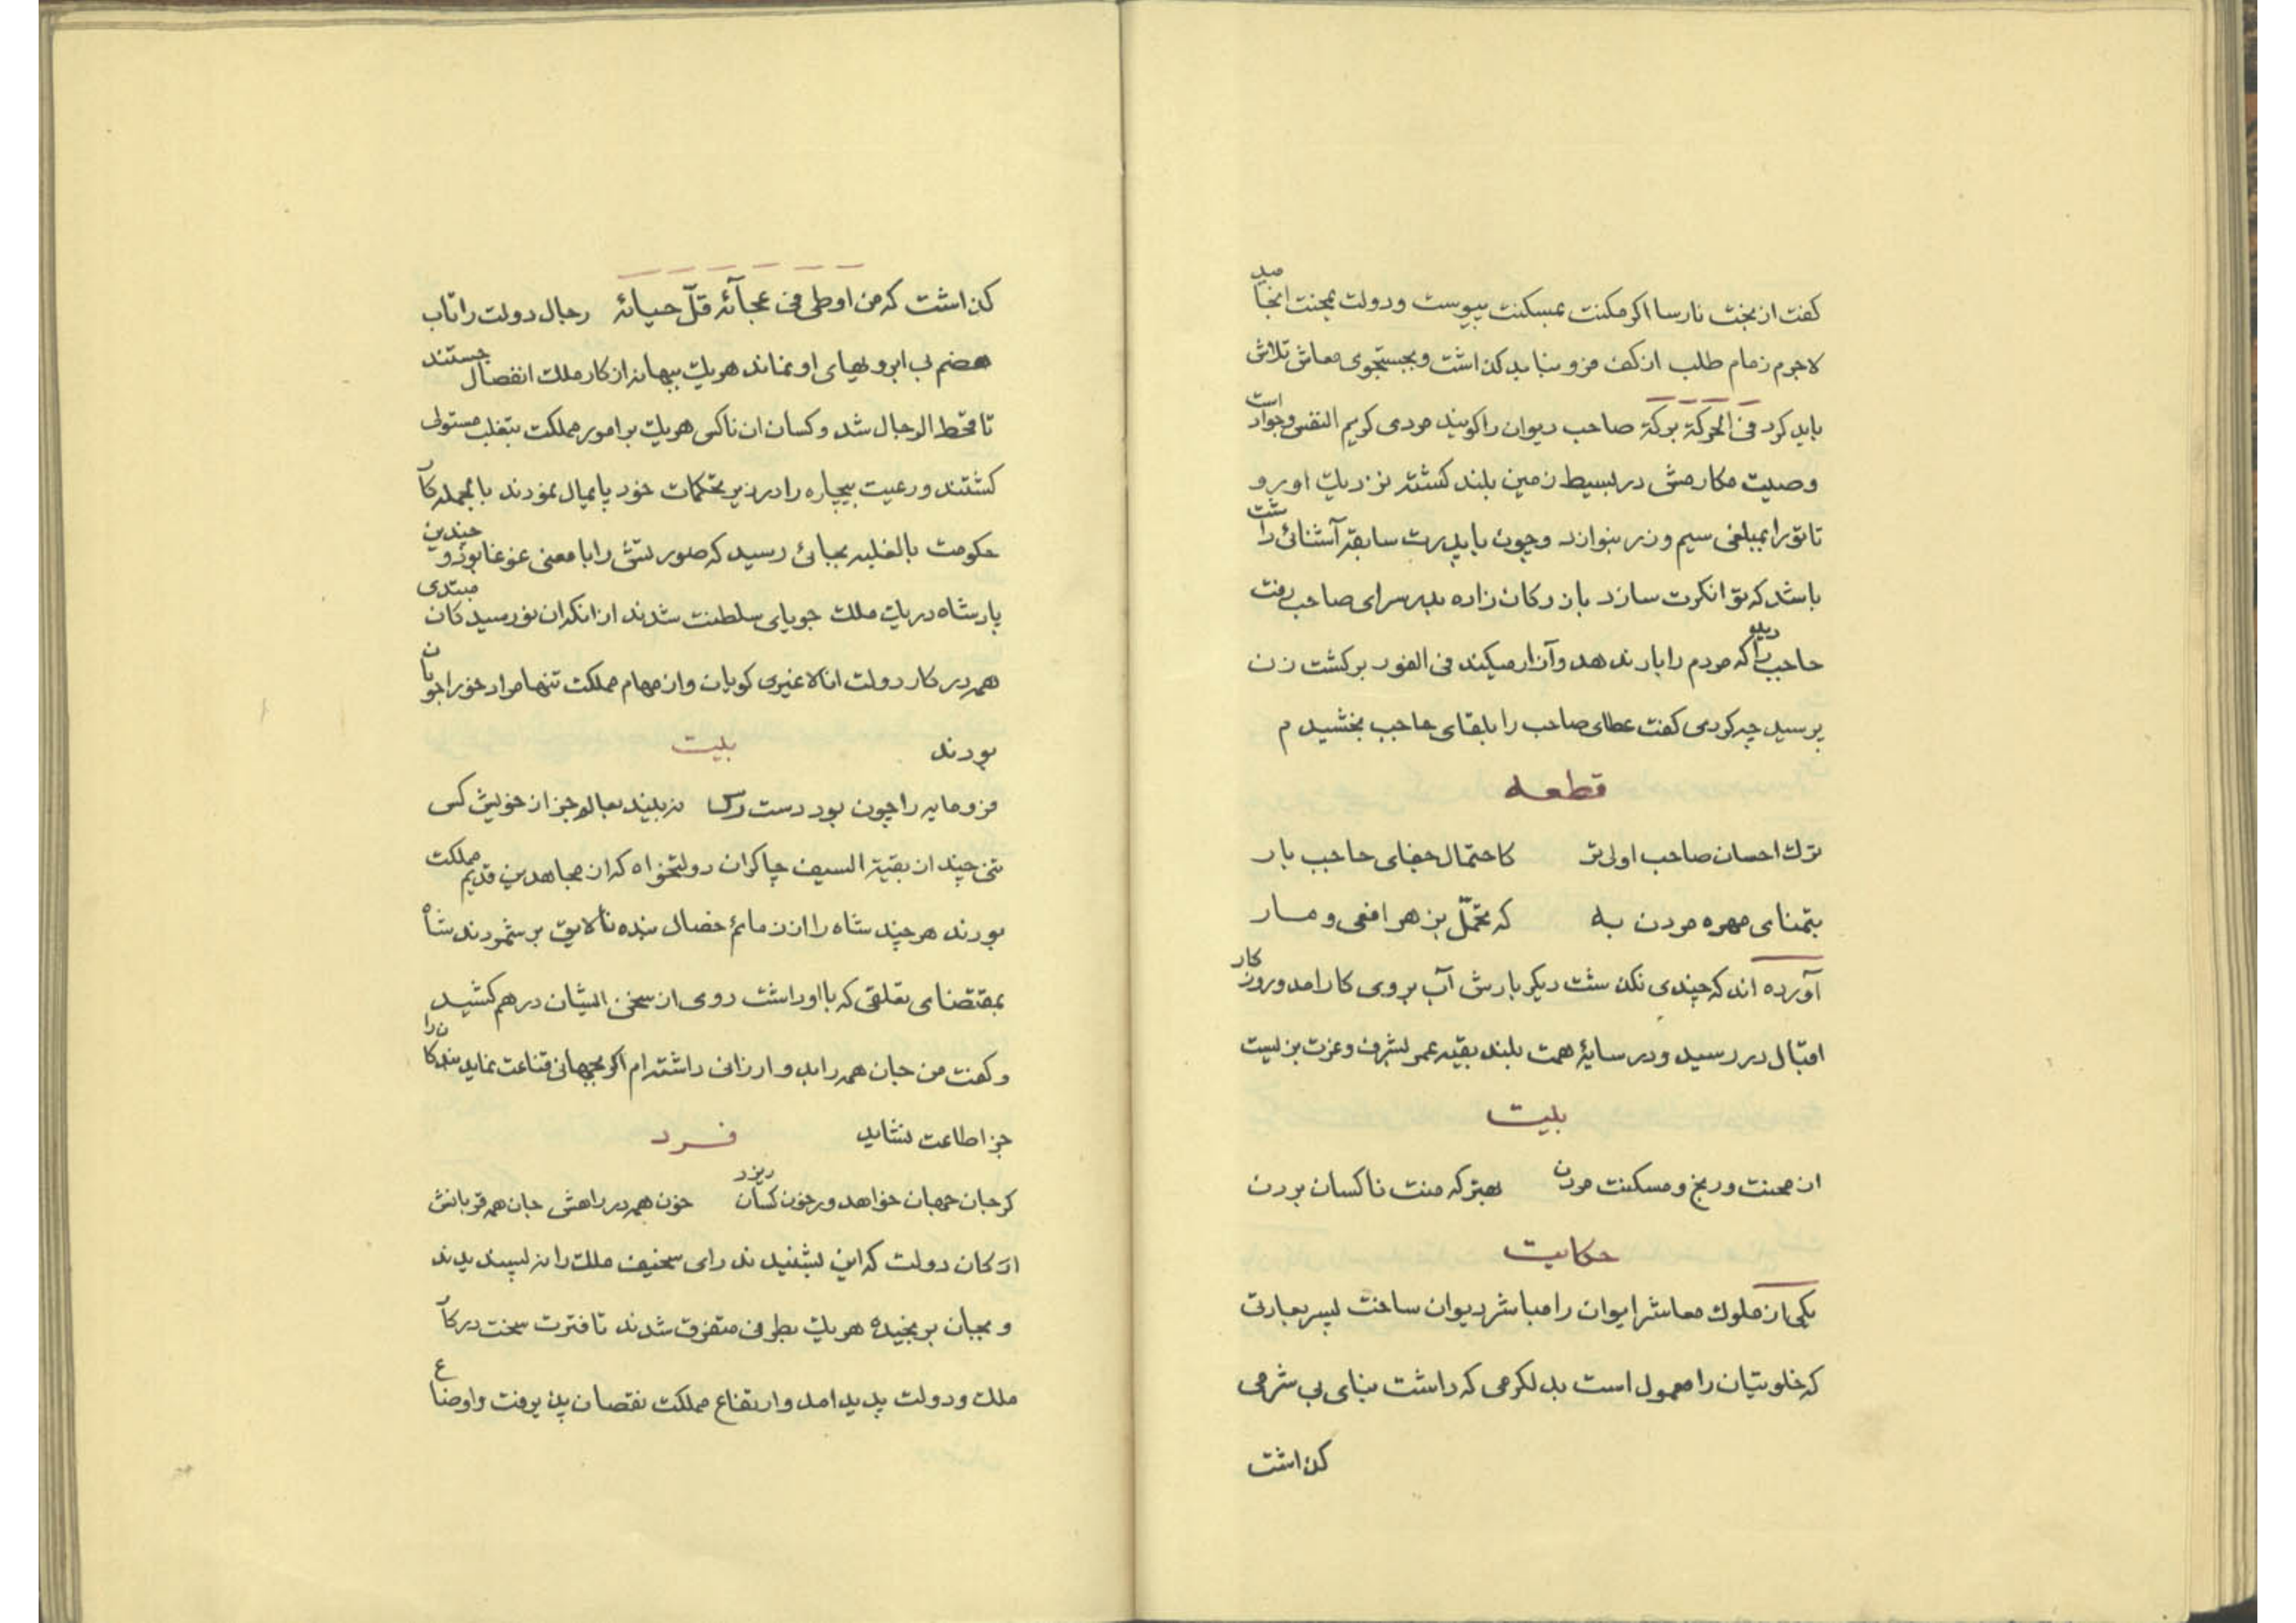 گفت از بخت نارسا اگر مکنت بمسکنت پیوست و دولت بمحنت انجامید
لاجرم زمام طلب از کف فرو نباید گذاشت و بجستجوی معاش تلاش
باید کرد فی الحرکة برکة صاحب دیوان را گویند مردی کریم النفس و جواد است
وصیت مکارمش در بسیط زمین بلند گشته نزدیک او رو
تا تو را بمبلغی سیم و زر بنوازد و چون با پدرت سابقه آشنائی داشت
باشد که توانگرت سازد بازرگان زاده بدر سرای صاحب رفت
حاجب را دید که مردم را بار ندهد و آزار میکند فی الفور برگشت زن
پرسید چه کردی گفت عطای صاحب را بلقای حاجب بخشیدم
قطعه
ترک احسان صاحب اولی تر کاحتمال جفای حاجب بار
بتمنای مهره مردن به که تحمّل بزهر افعی و مار
آورده اند که چندی نگذشت دیگر بارش آب بروی کار امد و روز کار
اقبال در رسید و در سایهٔ همت بلند بقیه عمر بشرف و عزت بزیست
بیت
از محنت و رنج و مسکنت مردن بهتر که منت ناکسان بردن
حکایت
یکی از ملوک معاشر ایوان را مباشر دیوان ساخت پسر بعادتی
که خلوتیان را معمول است بدلگرمی که داشت بنای بی شرمی
گذاشت
گذاشت که من اوطی فی عجآئه قلّ حیائه رجال دولت را تاب
هضم بی ابروئیهای او نماند هر یک ببهانه از کار ملک انفصال جستند
تا قحط الرجال شد و کسان ان ناکس هر یک بر امور مملکت بتغلب مستولی
گشتند و رعیت بیچاره را در زیر تحکمات خود پایمال نمودند بالجمله کار
حکومت بالغلبه بجائی رسید که صورتش را با معنی غوغا بود و چندین
پادشاه در یک ملک جویای سلطنت شدند از انکران نورسیدکان مبتدی
همه در کار دولت انا لا غیری گویان و از مهام مملکت تنها مراد خود را جویان
بودند
بیت
فرومایه را چون بود دست رس نه بیند بعالم جز از خویش کس
تنی چند از بقیة السیف چاکران دولتخواه که از مجاهدین قدیم مملکت
بودند هر چند شاه را از ذمائم خصال بنده نالایق بر شمردند شاه
بمقتضای تعلقی که با او داشت روی از سخن ایشان در هم کشید
و گفت من جان همه را بدو ارزانی داشته ام اگر بجهانی قناعت نماید بندکان را
جز اطاعت نشاید
فرد
گر جان جهان خواهد ور خون کسان ریزد خون همه در راهش جان همه قربانش
ارکان دولت که این بشنیدند رای سخیف ملک را نه پسندیدند
و بجان برنجیده هر یک بطرفی متفرق شدند تا فترت سخت در کار
ملک و دولت پدید امد و ارتفاع مملکت نقصان پذیرفت و اوضاع